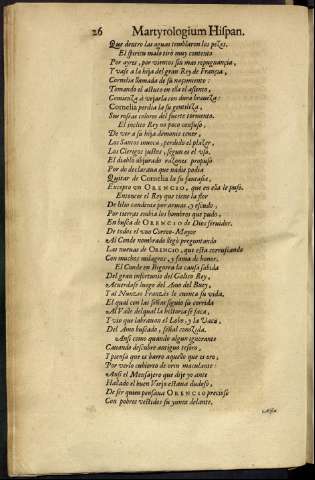 26 Martyrologium Hispan.
Que dentro las aguas temblaron los pezes.
El spiritu malo tirò muy contento
Por ayres, por vientos sin mas repugnançia,
Y vase a la hija del gran Rey de França,
Cornelia llamada de su nacimento:
Tomando el astuto en ella el assento,
Comiença à vejarla con dura braveza:
Cornelia perdia la su gentileza,
Sus rosas colores del fuerte tormento.
El inclito Rey no poco confuso,
De ver a su hija demonio tener,
Los Santos invoca, perdido el plazer,
Los Clerigos justos, segun es el uso.
El diablo abjurado razones propuso
Por do declarava que nadie podia
Quitar de Cornelia la su fantasia,
Excepto un ORENCIO, que en ella le puso.
Entonces el Rey que tiene la flor
De lilio candiente por armas, y escudo,
Por tierras embia los hombres que pudo,
En busca de ORENCIO de Dios servidor.
De todos el uno Correo-Mayor
Al Conde nombrado llegò preguntando
Las nuevas de ORENCIO, que esta coruscando
Con muchos milagros, y fama de honor.
El Conde en Bigorra la causa sabida
Del gran infortunio del Galico Rey,
Acuerdase luego del Amo del Buey,
Y al Nunzio Françes le cuenta su vida,
El qual con las señas siguio su corrida
Al Valle del qual la historia se saca,
Y vio que labravan el Lobo, y la Vaca,
Del Amo buscado, señal conosçida.
Ansi como quando algun ignorante
Cavando descubre antiguo tesoro,
Y piensa que es barro aquello que es oro,
Por verlo cubierto de orin maculante:
Ansi el Mensajero que dije yo ante
Halado el buen Viejo estava dudoso,
De ser quien pensava ORENCIO precioso
Con pobres vestidos su yunta delante.